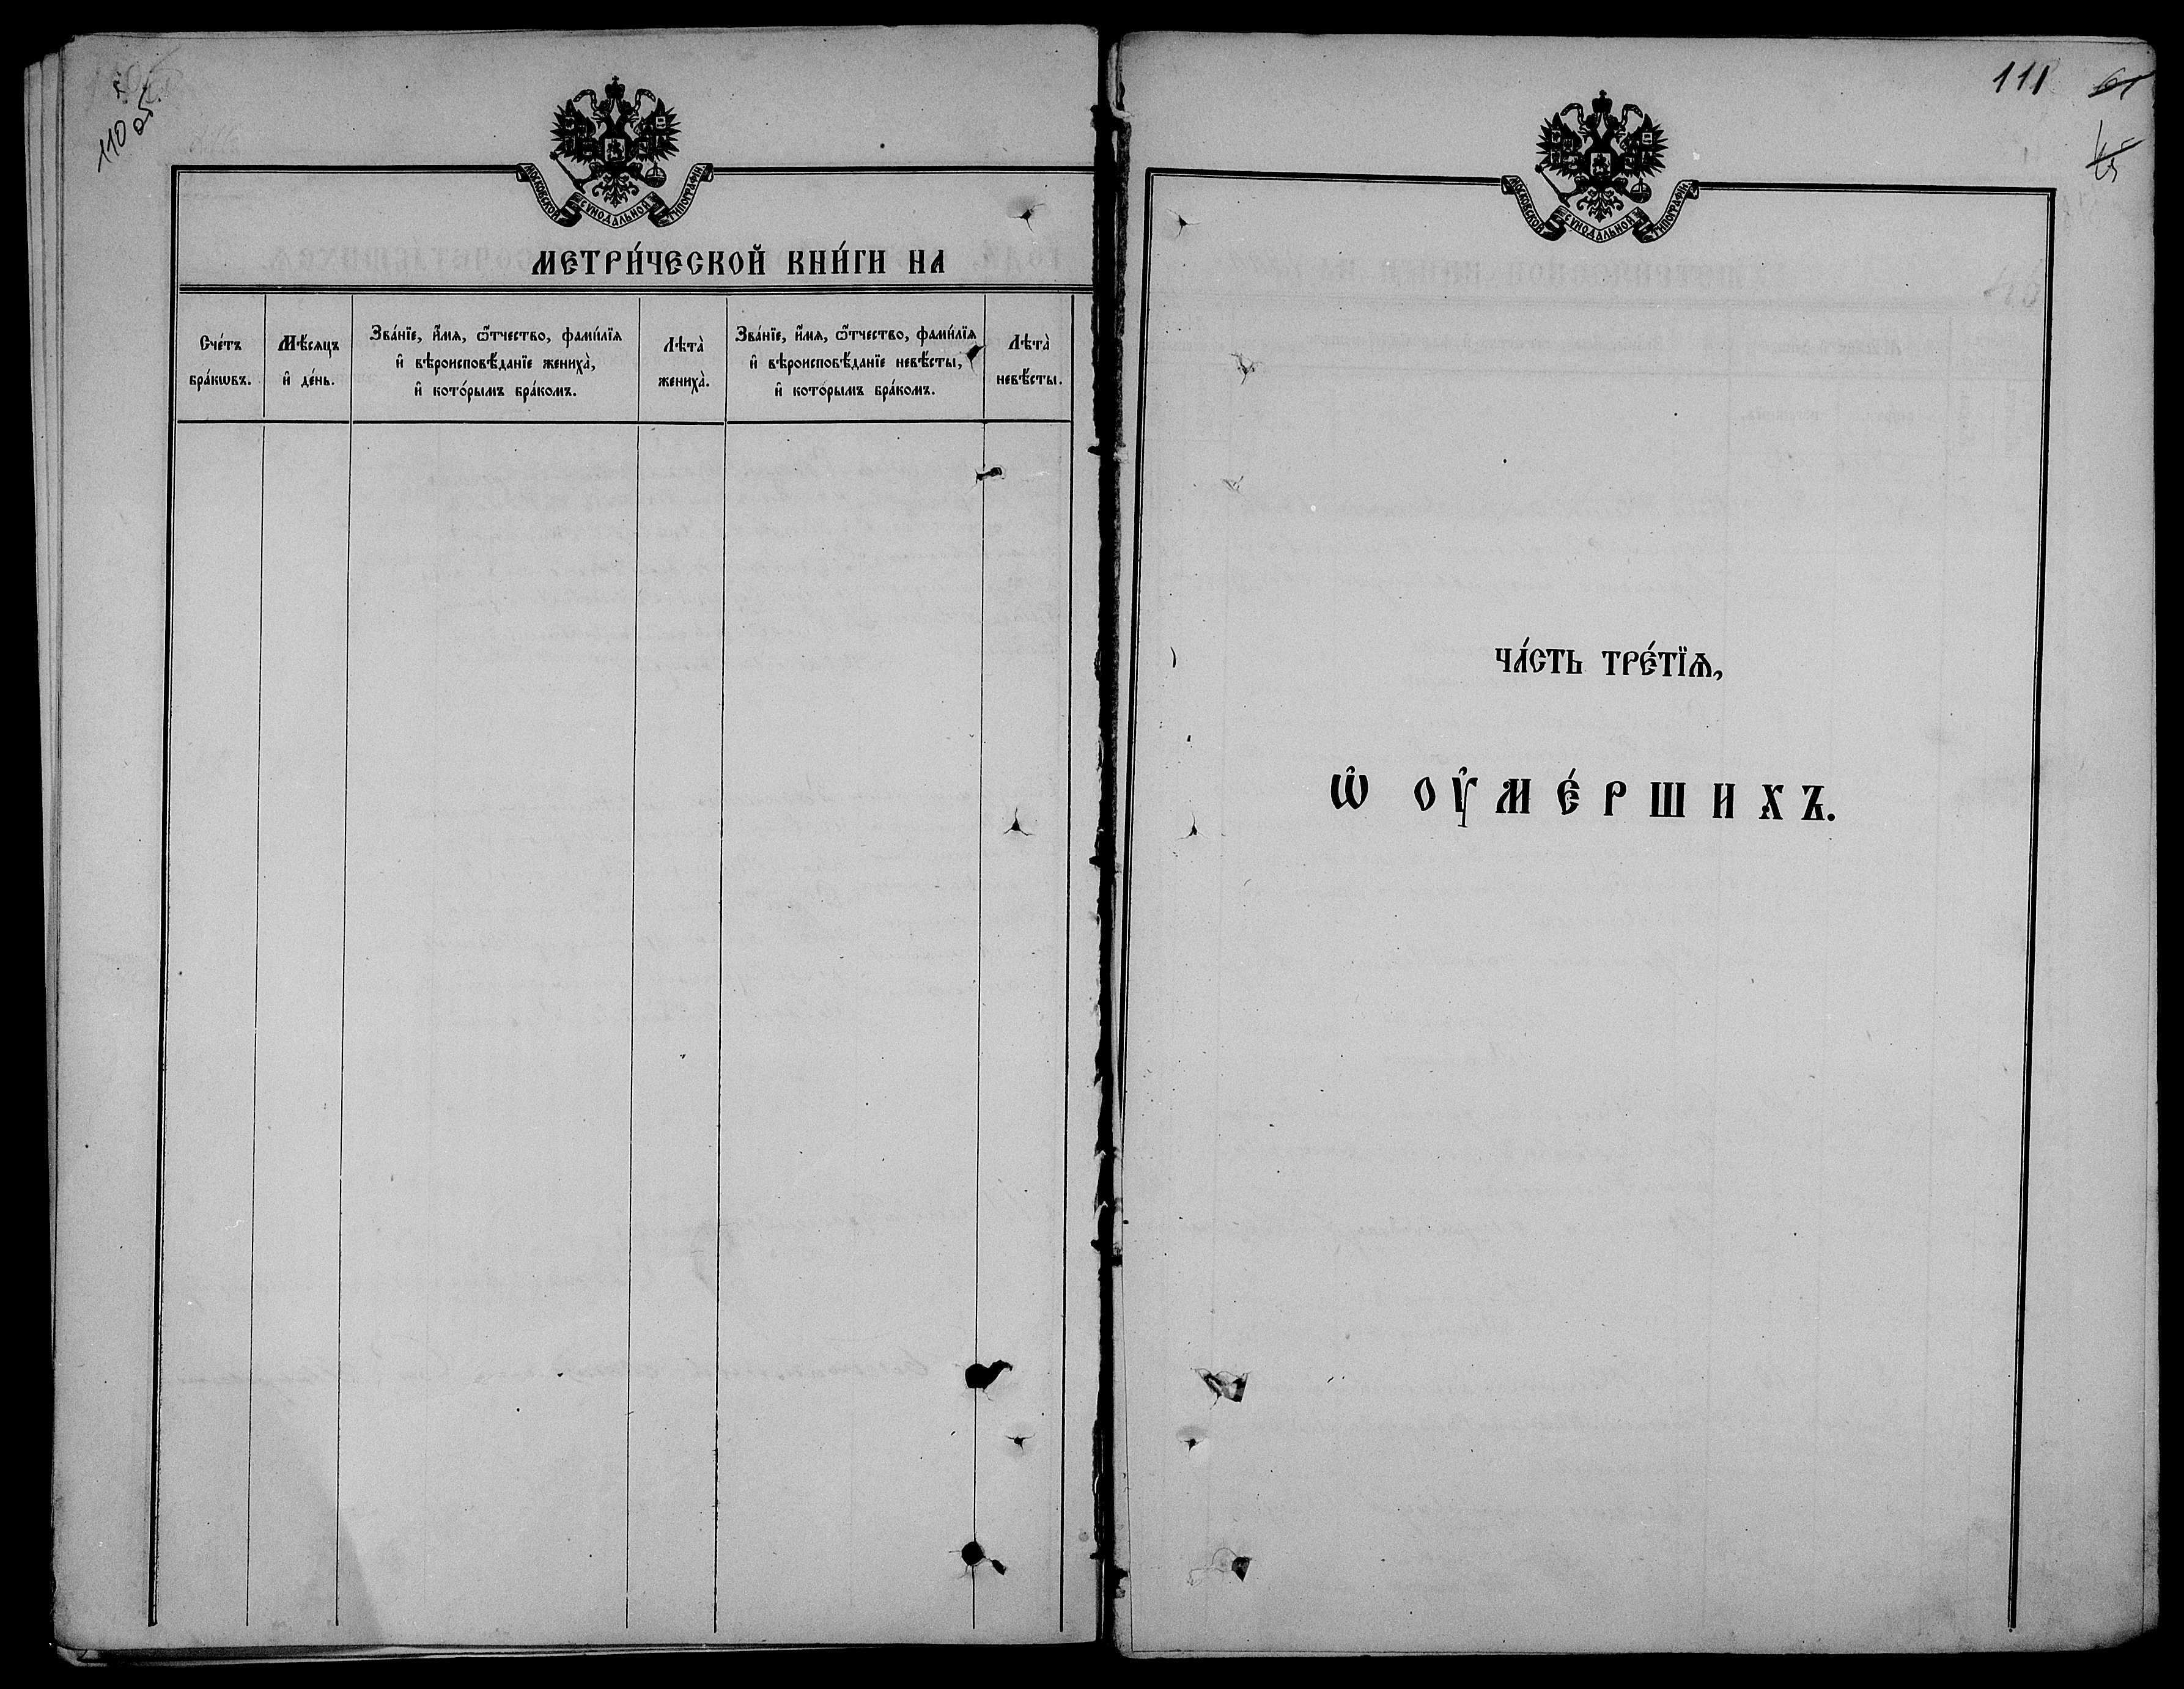 110 об.
МОСКОВСКОЙ СѴНОДАЛЬНОЙ ТИПОГРАФІИ.
МЕТРИ́ЧЕСКОЙ КНИ́ГИ НА
Сче́тъ бра́кѡвъ.
Мѣ́сяцъ и҆ де́нь.
Зва́нїе, и҆́мя, ѻ҆́тчество, фами́лїя
и҆ вѣроисповѣ́данїе жениха̀,
и҆ кото́рымъ бра́комъ.
Лѣта̀ жениха̀.
Зва́нїе, и҆́мя, ѻ҆́тчество, фами́лїя
и҆ вѣроисповѣ́данїе невѣ́сты,
и҆ кото́рымъ бра́комъ.
Лѣта̀ невѣ́сты.
111
МОСКОВСКОЙ СѴНОДАЛЬНОЙ ТИПОГРАФІИ.
ЧА́СТЬ ТРЕ́ТЇѦ,
Ѡ҆ ОУ҆МЕ́РШИХЪ.